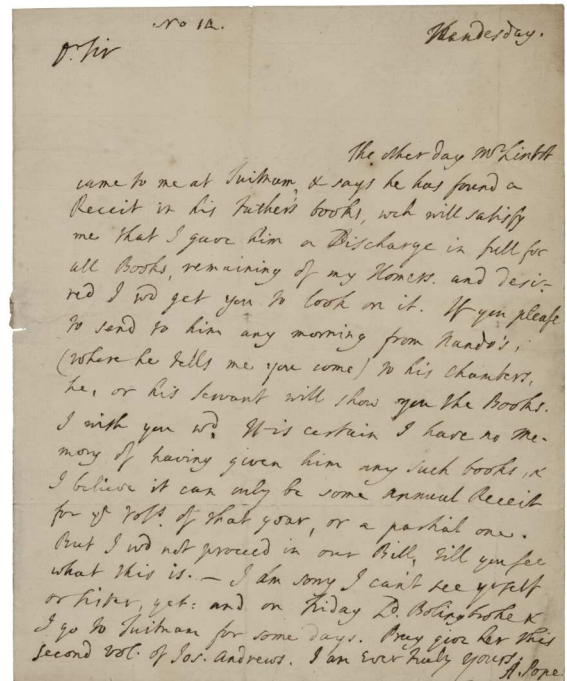 No 12.
Wendesday.
Dr Sir
The other day Mr Lintot
came to me at Twitnam, & says he has found a
Receit in his Father's books, wch will satisfy
me that I gave him a Discharge in full for
all Books, remaining of my Homers. and desi-
red I wd get you to look on it. If you please
to send to him any morning from Nando's,
(where he tells me you come) to his Chambers,
he, or his Servant will show you the Books.
I wish you wd. It is certain I have no me-
mory of having given him any such books, &
I believe it can only be some annual Receit
for ye Vols. of that year, or a partial one.
But I wd not proceed in our Bill, till you see
what this is. — I am sorry I can't see yrself
or Sister, yet: and on Friday Ld. Bolingbroke &
I go to Twitnam for some days. Pray give her this
second vol. of Jos. Andrews. I am Ever truly yours,
A. Pope